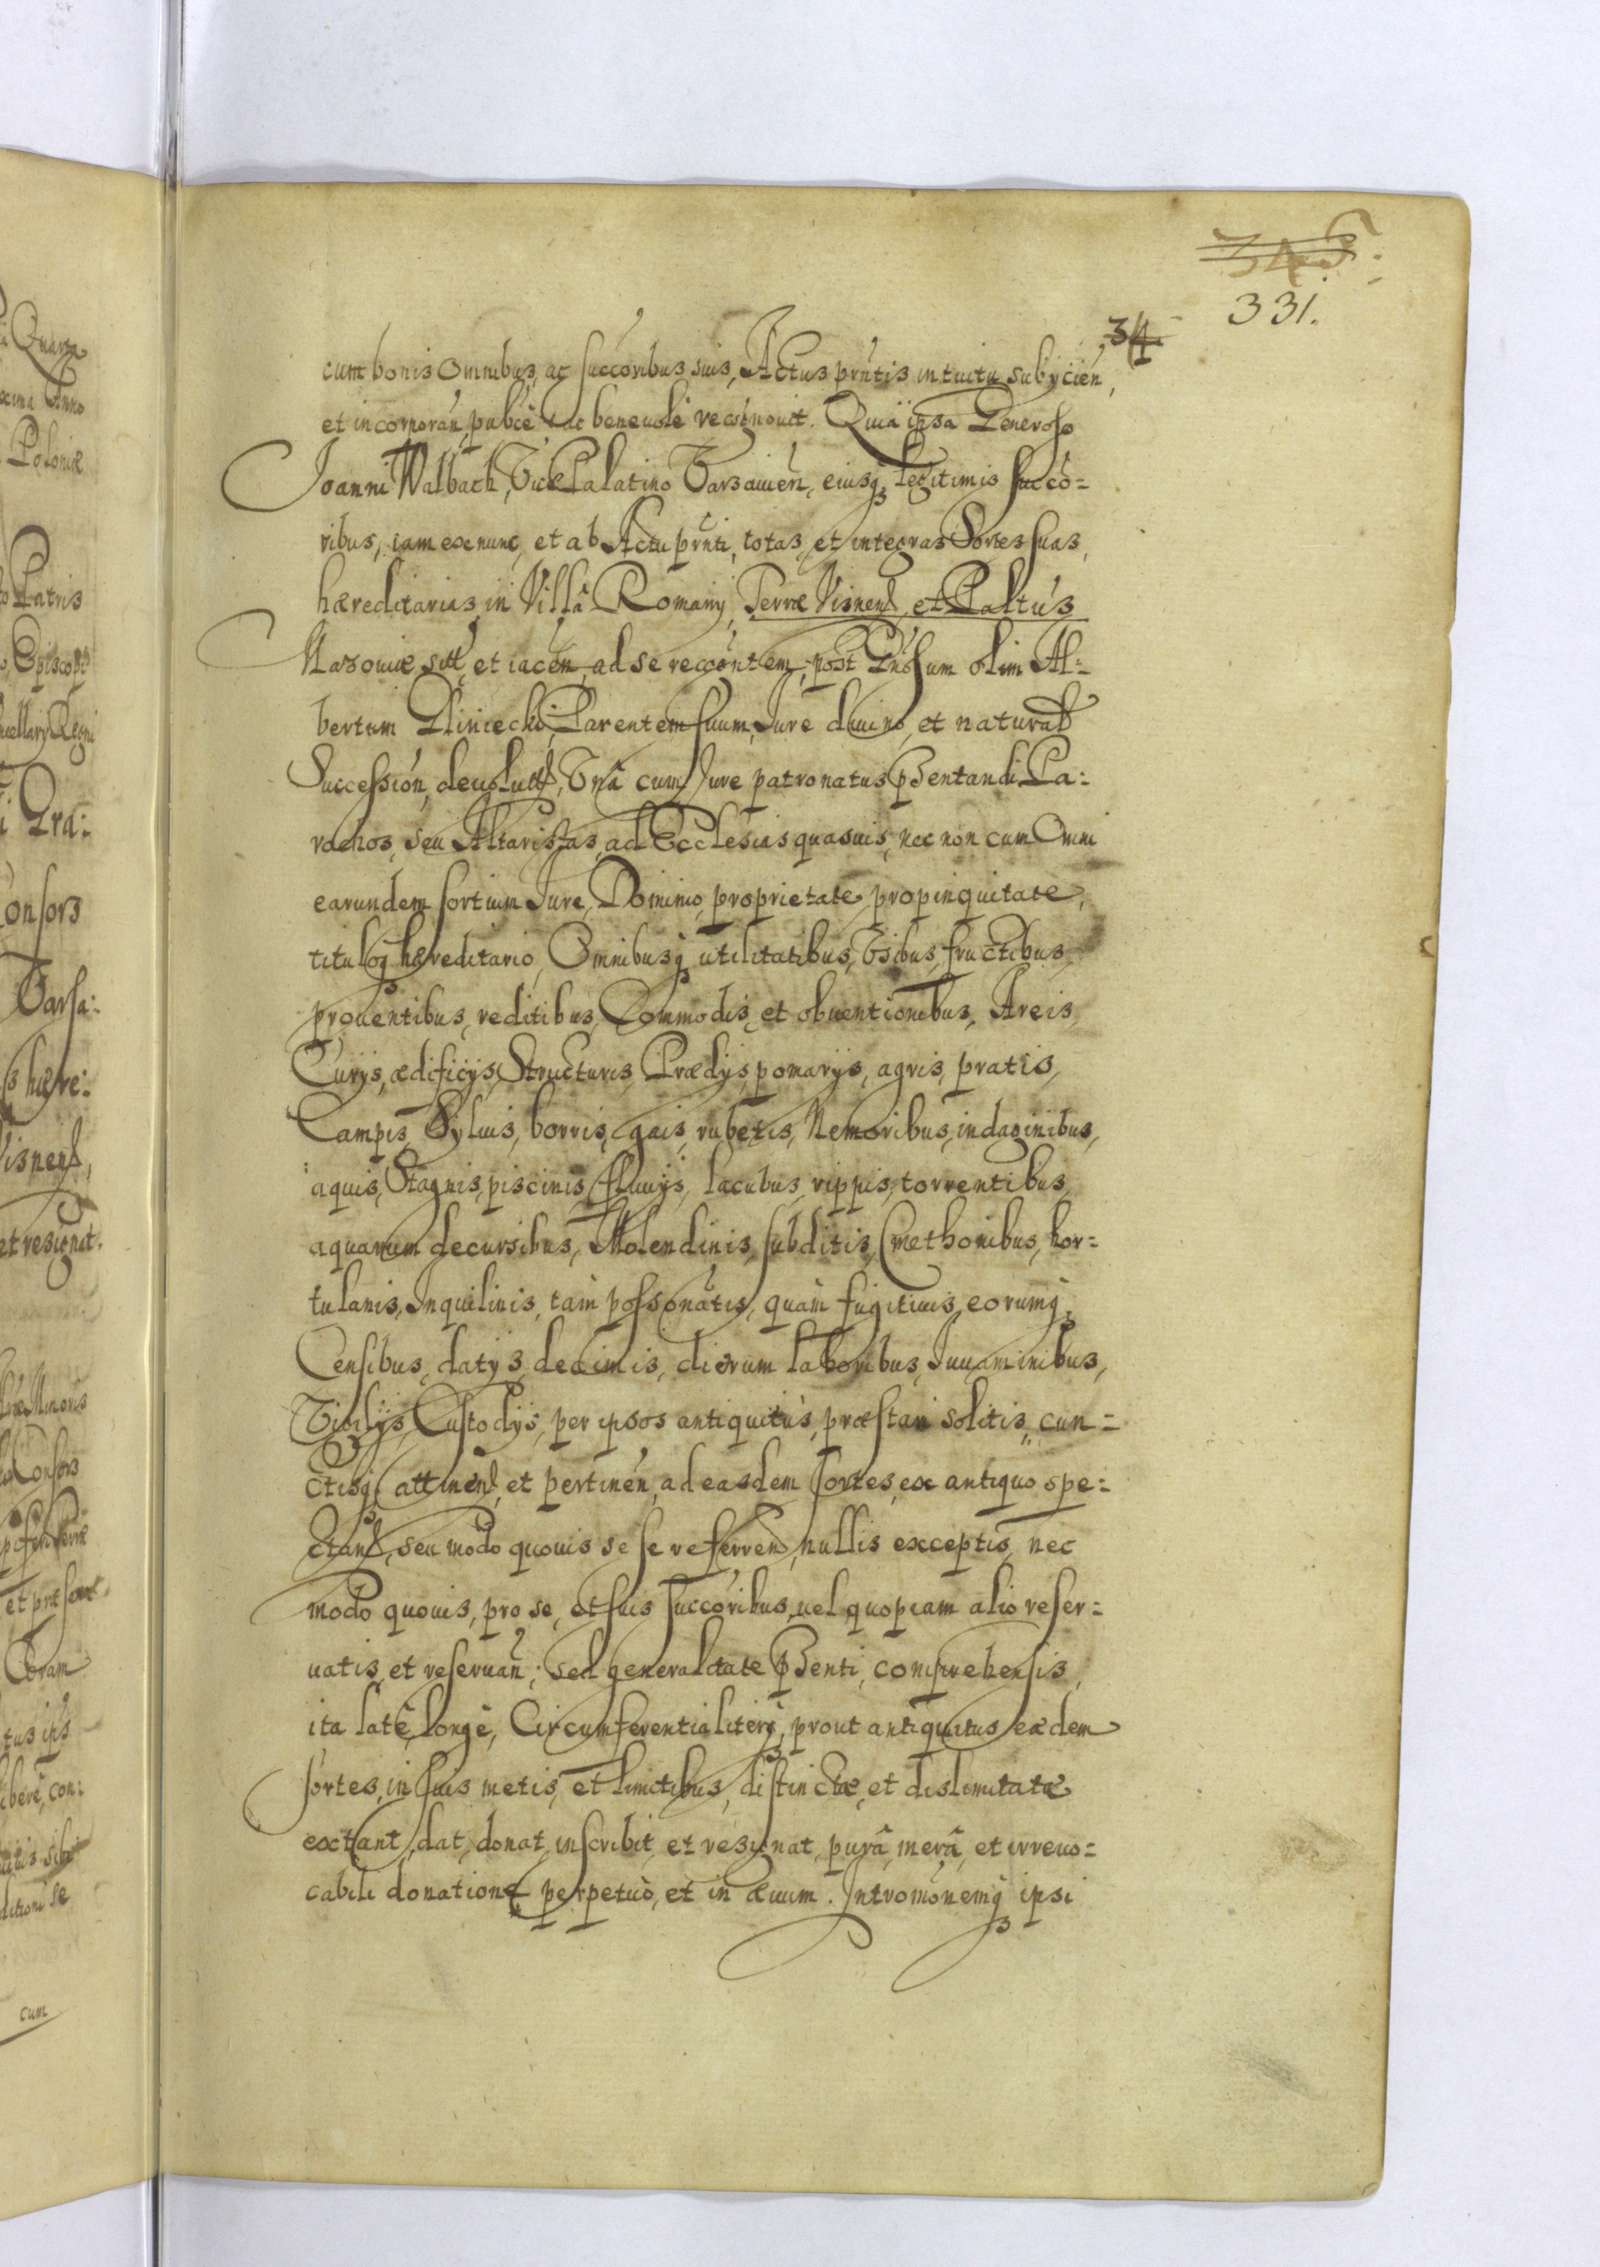 345.
331.
34
cum bonis Omnibus, ac succōribus suis, Actus prn̄tis intuitu subycien̄,
et incorporan̄, pub̄cè, ac beneuolè recōgnouit. Quia ipsa Generoso
Joanni Walbach, Vice Palatino Varsauien̄, eiusq́ legitimis succō=
ribus, iam ex nunc, et ab Actu prn̄ti, totas, et integras Sortes suas,
hæreditarias, in Villâ Romany, Terræ Visnen̄, et Paltus
Mazouiæ, sitt, et iacen̄, ad se recōntem, post Gn̄osum olim Al=
bertum Gliniecki, Parentem suum, Jure diuino, et natural
Succession̄, deuolutt, Vnâ cum Jure patronatus pn̄tandi Pa:
rochos, seu Altaristas, ad Ecclesias quasuis, nec non cum Omni
earundem sortium Jure, Dominio, proprietate, propinquitate,
tituloq́ hæreditario, Omnibusq́ utilitatibus, Vsibus, fructibus,
prouentibus, reditibus, Commodis, et obuentionibus, Areis,
Curys, ædificijs, Structuris, Prædijs, pomarijs, agris, pratis,
Campis, Syluis, borris, gais, rubetis, Nemoribus, indaginibus,
aquis, Stagnis, piscinis, fluuijs, lacubus, rippis, torrentibus,
aquarum decursibus, Molendinis, subditis, Cmethonibus, hor=
tulanis, Inquilinis, tàm possōnatis, quàm fugitiuis, eorumq́
Censibus, datys, decimis, dierum laboribus, Juuaminibus,
Vigilijs, Custodijs, per ipsos antiquitus, præstari solitis, cun=
ctisq́ attinen̄, et pertinen̄, ad easdem sortes, ex antiquo spe:
ctan̄, seu modo quouis se se referren̄, nullis exceptis, nec
modo quouis, pro se, et suis succōribus, uel quopiam alio reser=
uatis, et reseruan̄; Sed generalitate pn̄ti, comprehensis,
ita latè longè, Circumferentialiterq́, prout antiquitus eædem
sortes, in suis metis, et limitibus, distinctæ, et dislimitatæ
extant, dat, donat, inscribit, et resignat, purâ, merâ, et irreuo=
cabili donatione, perpetuò, et in æuum. Intromōnemq́ ipsi